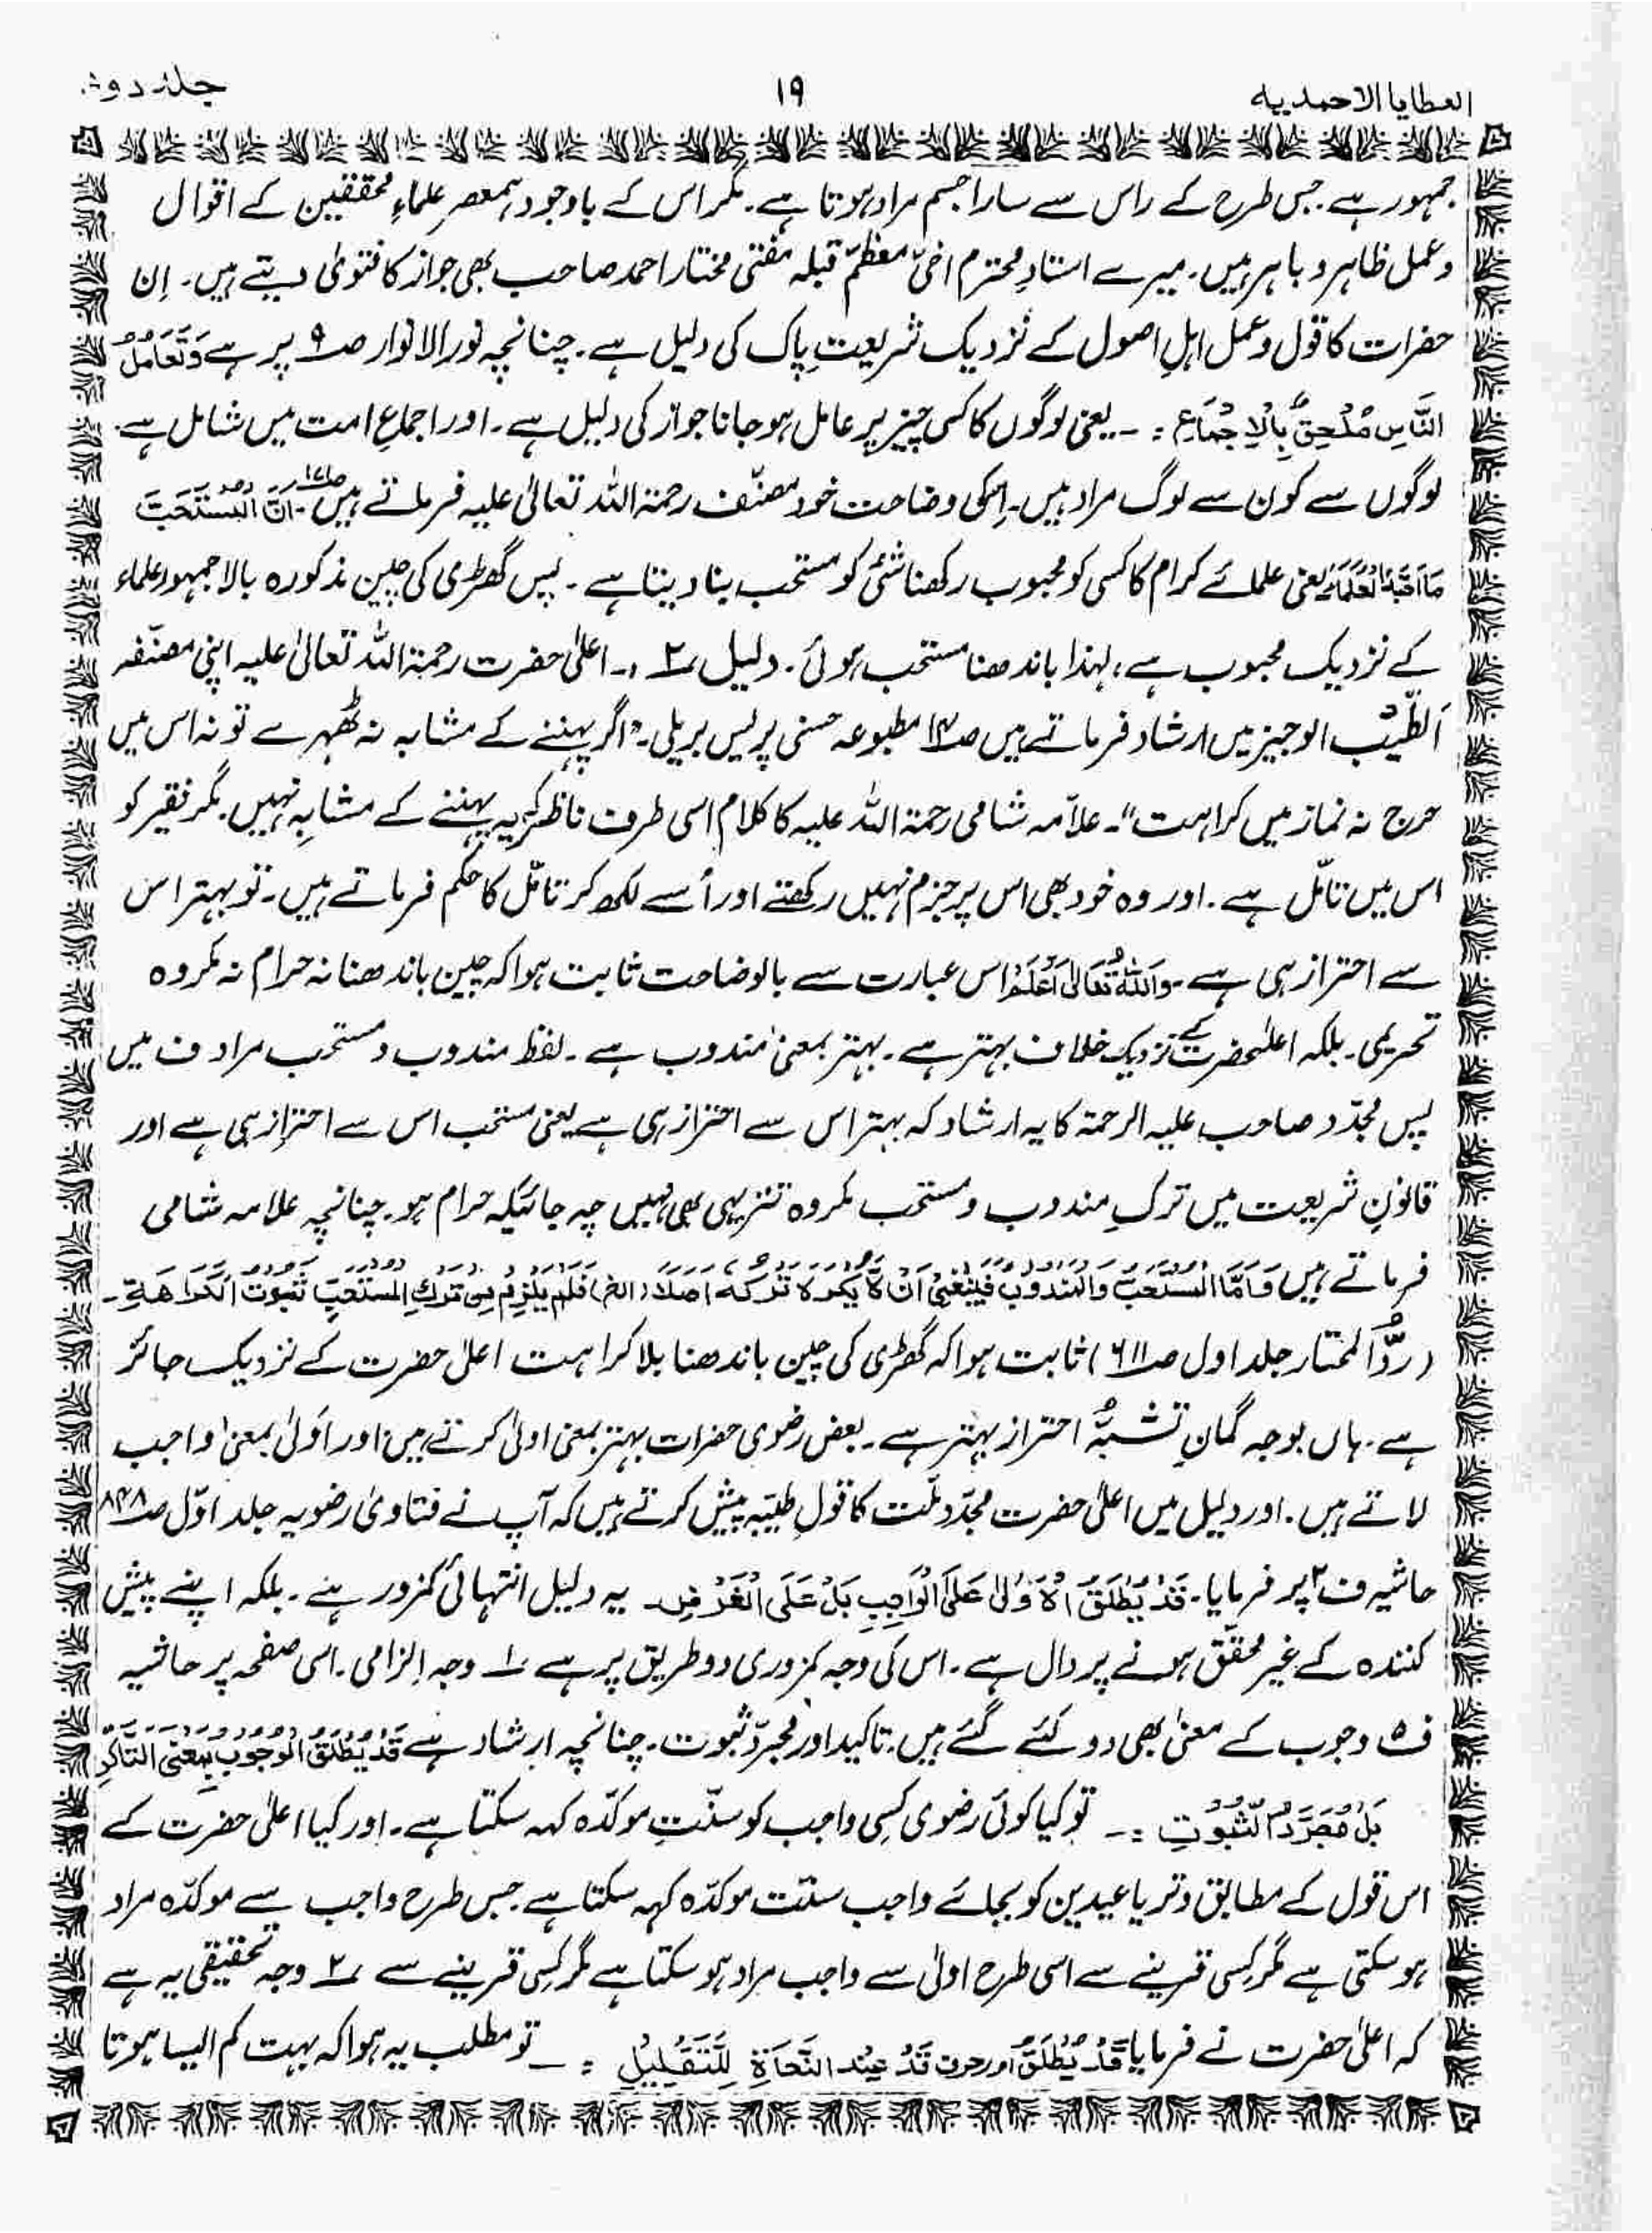 العطایا الاحمدیہ
۱۹
جلد دوم
جمہور ہے جس طرح کے راس سے سارا جسم مراد ہوتا ہے۔ مگر اس کے باوجود ہمعصر علماءِ محققین کے اقوال
و عمل ظاہر و باہر ہیں۔ میرے استادِ محترم اخیّ معظمّ قبلہ مفتی مختار احمد صاحب بھی جواز کا فتویٰ دیتے ہیں۔ اِن
حضرات کا قول و عمل اہلِ اصول کے نزدیک شریعتِ پاک کی دلیل ہے۔ چنانچہ نور الانوار صـ۹ پر ہے وَتَعَامُلُ
النَّاسِ مُلْحِقٌ بِالْاِجْمَاعِ :۔ یعنی لوگوں کا کسی چیز پر عامل ہو جانا جواز کی دلیل ہے۔ اور اجماعِ امت میں شامل ہے۔
لوگوں سے کون سے لوگ مراد ہیں۔ اِسکی وضاحت خود مصنّف رحمۃ اللہ تعالیٰ علیہ فرماتے ہیں صـ۱۷۱۔ اَنَّ الْمُسْتَحَبَّ
مَا اَحَبَّہُ الْعُلَمَاءُ یعنی علمائے کرام کا کسی کو محبوب رکھنا شئ کو مستحب بنا دیتا ہے۔ پس گھڑی کی چین مذکورہ بالا جمہور علماء
کے نزدیک محبوب ہے، لہٰذا باندھنا مستحب ہوئی۔ دلیل ۲ :۔ اعلیٰ حضرت رحمۃ اللہ تعالیٰ علیہ اپنی مصنّفہ
اَلطِّیْبُ الوجیز میں ارشاد فرماتے ہیں صـ۱۴ مطبوعہ حسنی پریس بریلی۔ "اگر پہننے کے مشابہ نہ ٹھہرے تو نہ اس میں
حرج نہ نماز میں کراہت"۔ علاّمہ شامی رحمۃ اللہ علیہ کا کلام اسی طرف ناظر کہ یہ پہننے کے مشابِہ نہیں۔ مگر فقیر کو
اس میں تامّل ہے۔ اور وہ خود بھی اس پر جزم نہیں رکھتے اور اُسے لکھ کر تامّل کا حکم فرماتے ہیں۔ تو بہتر اس
سے احتراز ہی ہے۔ وَاللہُ تَعَالیٰ اَعْلَمُ اس عبارت سے بالوضاحت ثابت ہوا کہ چین باندھنا نہ حرام نہ مکروہ
تحریمی۔ بلکہ اعلٰحضرت کے نزدیک خلاف بہتر ہے۔ بہتر بمعنیٰ مندوب ہے۔ لفظ مندوب و مستحب مرادف ہیں
پس مجدّد صاحب علیہ الرحمۃ کا یہ ارشاد کہ بہتر اس سے احتراز ہی ہے یعنی مستحب اس سے احتراز ہی ہے اور
قانونِ شریعت میں ترکِ مندوب و مستحب مکروہ تنزیہی بھی نہیں چہ جائیکہ حرام ہو۔ چنانچہ علامہ شامی
فرماتے ہیں وَاَمَّا الْمُسْتَحَبُّ وَالْمَنْدُوْبُ فَیَنْبَغِیْ اَنْ لَّا یَکْرَہَ تَرْکُہٗ اَصْلًا (الخ) فَلَمْ یَلْزِمْ مِنْ تَرْکِ الْمُسْتَحَبِّ ثُبُوْتُ الْکَرَاھَۃِ۔
(ردُّ المحتار جلد اول صـ۶۱۱) ثابت ہوا کہ گھڑی کی چین باندھنا بلا کراہت اعلیٰ حضرت کے نزدیک جائز
ہے۔ ہاں بوجہ گمانِ تشبُّہ احتراز بہتر ہے۔ بعض رضوی حضرات بہتر بمعنی اولیٰ کرتے ہیں اور اَولیٰ بمعنیٰ واجب
لاتے ہیں۔ اور دلیل میں اعلیٰ حضرت مجدّد ملّت کا قولِ طیّبہ پیش کرتے ہیں کہ آپ نے فتاویٰ رضویہ جلد اوّل صـ۸۴۸
حاشیہ ف۲ پر فرمایا۔ قَدْ یُطْلَقُ الْاَوْلٰی عَلَی الْوَاجِبِ بَلْ عَلَی الْفَرْضِ۔ یہ دلیل انتہائی کمزور ہے۔ بلکہ اپنے پیش
کنندہ کے غیر محقّق ہونے پر دال ہے۔ اس کی وجہ کمزوری دو طریق پر ہے ۱ وجہ اِلزامی۔ اسی صفحہ پر حاشیہ
ف۵ وجوب کے معنیٰ بھی دو کئے گئے ہیں۔ تاکید اور مجرّد ثبوت۔ چنانچہ ارشاد ہے قَدْ یُطْلَقُ الْوُجُوْبُ بِمَعْنَی التَّاَکُّدِ
بَلْ مُجَرَّدُ الثُّبُوْتِ :۔ تو کیا کوئی رضوی کسی واجب کو سنّتِ موکدّہ کہہ سکتا ہے۔ اور کیا اعلیٰ حضرت کے
اس قول کے مطابق وتر یا عیدین کو بجائے واجب سنّت موکدّہ کہہ سکتا ہے جس طرح واجب سے موکدّہ مراد
ہو سکتی ہے مگر کسی قرینے سے اسی طرح اولیٰ سے واجب مراد ہو سکتا ہے مگر کسی قرینے سے ۲ وجہ تحقیقی یہ ہے
کہ اعلیٰ حضرت نے فرمایا قَدْ یُطْلَقُ اور حرف قَدْ عِنْد النُّحَاۃِ لِلتَّقْلِیْلِ :۔ تو مطلب یہ ہوا کہ بہت کم ایسا ہوتا